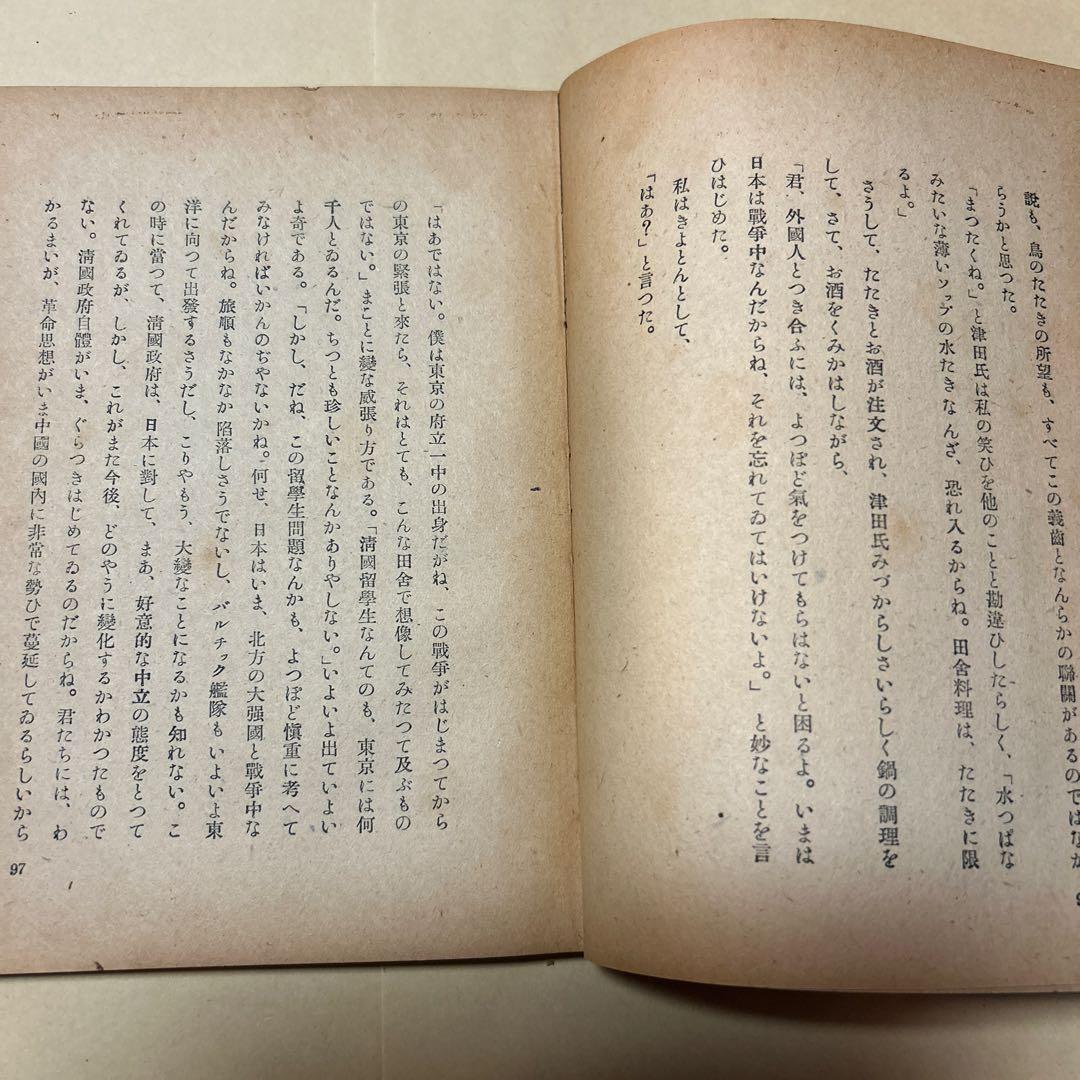 說も、鳥のたたきの所望も、すべてこの義齒となんらかの聯關があるのではなか
らうかと思つた。
「まつたくね。」と津田氏は私の笑ひを他のことと勘違ひしたらしく、「水つぱな
みたいな薄いソップの水たきなんざ、恐れ入るからね。田舍料理は、たたきに限
るよ。」
さうして、たたきとお酒が注文され、津田氏みづからしさいらしく鍋の調理を
して、さて、お酒をくみかはしながら、
「君、外國人とつき合ふには、よつぽど氣をつけてもらはないと困るよ。いまは
日本は戰爭中なんだからね、それを忘れてゐてはいけないよ。」と妙なことを言
ひはじめた。
私はきよとんとして、
「はあ？」と言つた。
「はあではない。僕は東京の府立一中の出身だがね、この戰爭がはじまつてから
の東京の緊張と來たら、それはとても、こんな田舍で想像してみたつて及ぶもの
ではない。」まことに變な威張り方である。「淸國留學生なんてのも、東京には何
千人とゐるんだ。ちつとも珍しいことなんかありやしない。」いよいよ出ていよい
よ奇である。「しかし、だね、この留學生問題なんかも、よつぽど愼重に考へて
みなければいかんのぢやないかね。何せ、日本はいま、北方の大强國と戰爭中な
んだからね。旅順もなかなか陷落しさうでないし、バルチック艦隊もいよいよ東
洋に向つて出發するさうだし、こりやもう、大變なことになるかも知れない。こ
の時に當つて、淸國政府は、日本に對して、まあ、好意的な中立の態度をとつて
くれてゐるが、しかし、これがまた今後、どのやうに變化するかわかつたもので
ない。淸國政府自體がいま、ぐらつきはじめてゐるのだからね。君たちには、わ
かるまいが、革命思想がいま中國の國內に非常な勢ひで蔓延してゐるらしいから
97